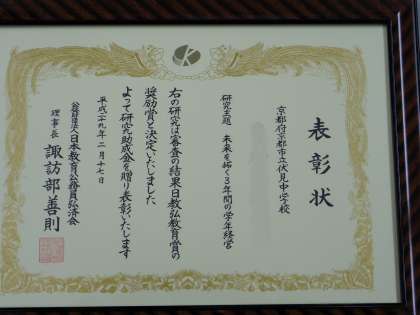 表彰状
京都府京都市立伏見中学校
研究主題 未来を拓く3年間の学年経営
右の研究は審査の結果日教弘教育賞の
奨励賞と決定いたしました
よって研究助成金を贈り表彰いたします
平成二十九年二月十七日
公益財団法人日本教育公務員弘済会
理事長 諏訪部善則